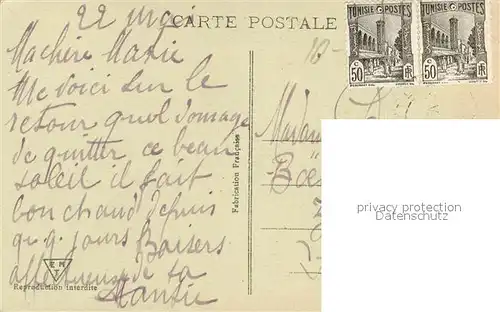 22 mai
CARTE POSTALE
TUNISIE POSTES
TUNISIE POSTES
50
RF
50
RF
Ma chère
Me voici sur le
retour quel domage
de quitter ce beau
soleil il fait
bon chaud depuis
q.q. jours Baisers
affectueux de ta
Madam
Fabrication Française
Reproduction interdite
privacy protection
Datenschutz